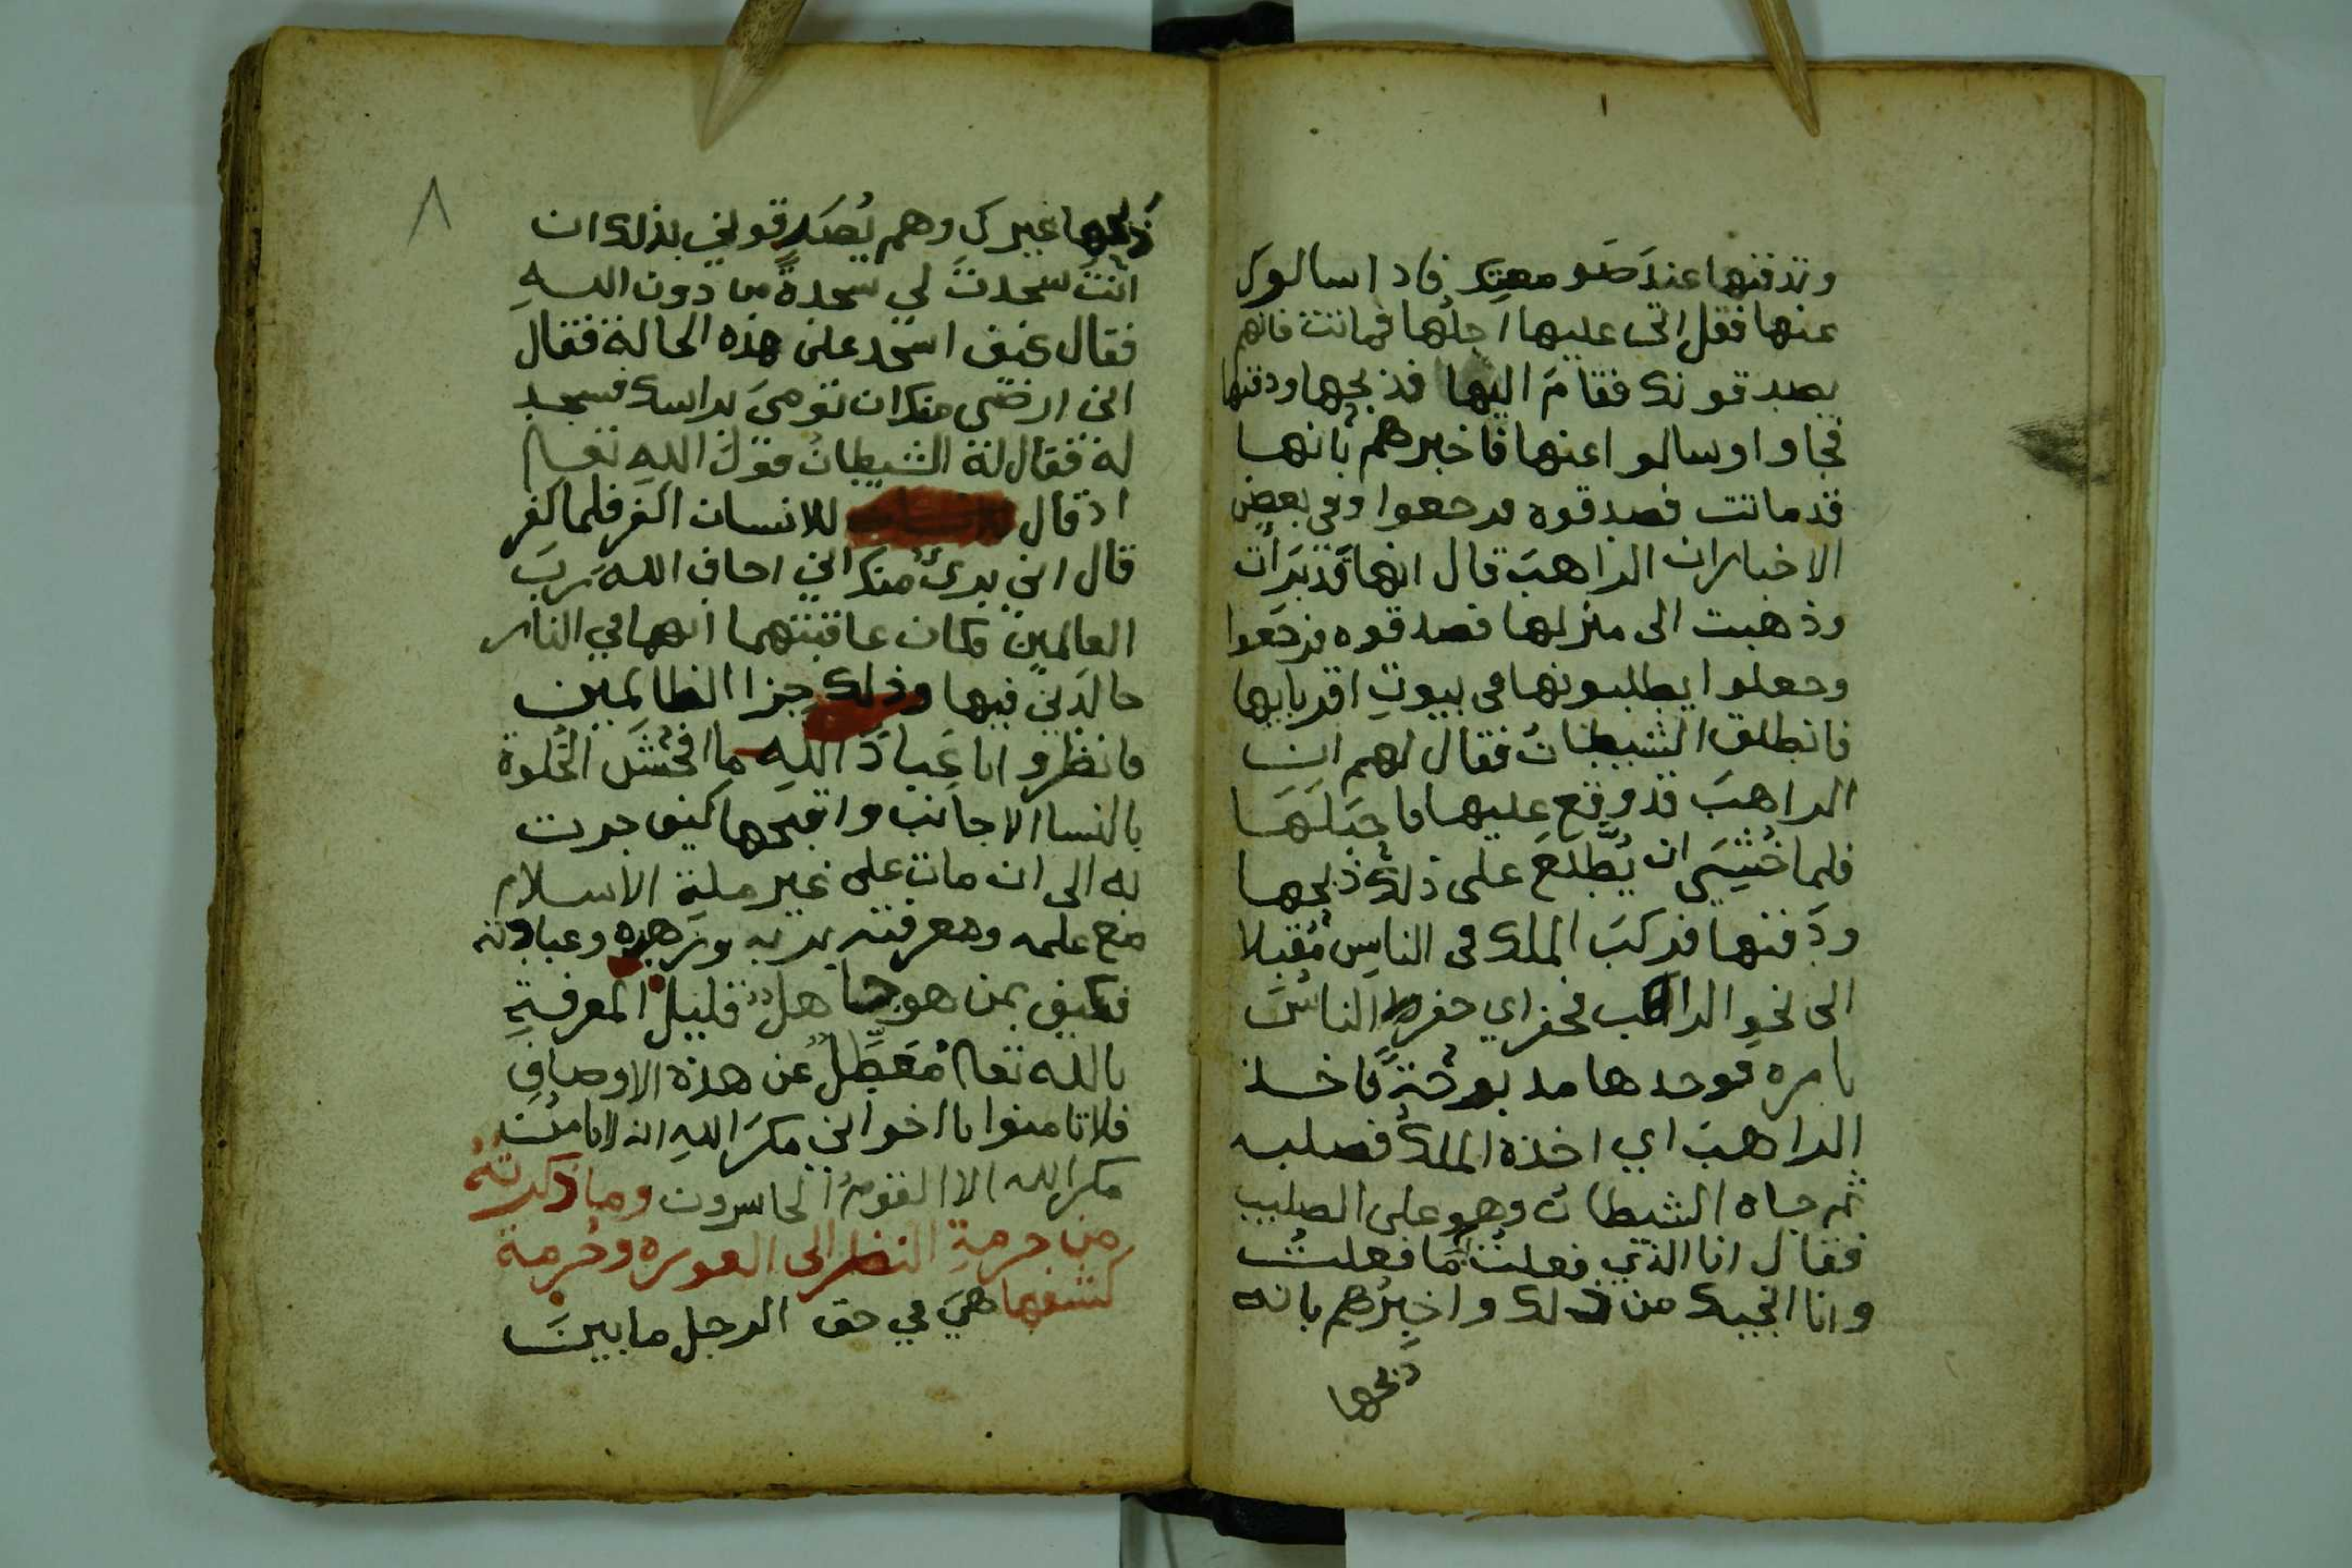 وتدفنها عند صومعتك فاذا سالوك
عنها فقل اتى عليها اجلها فماتت فانهم
يصدقونك فقام اليها فذبحها ودفنها
فجاوا وسالوا عنها فاخبرهم بانها
قد ماتت فصدقوه فرجعوا وفي بعض
الاخبار ان الراهب قال انها قد برأت
وذهبت الى منزلها فصدقوه فرجعوا
وجعلوا يطلبونها في بيوت اقربايها
فانطلق الشيطان فقال لهم ان
الراهب قد وقع عليها فاحبلها
فلما خشي ان يطلع على ذلك ذبحها
ودفنها فركب الملك في الناس مقبلا
الى نحو الراهب فحفر اي حفر الناس
بامره فوجدها مذبوحة فاخذ
الراهب اي اخذه الملك فصلبه
ثم جاه الشيطان وهو على الصليب
فقال انا الذي فعلت ما فعلت
وانا انجيك من ذلك واخبرهم بانه
ذبحها
٨
ذبحها غيرك وهم يصدقوني بذلك ان
انت سجدت لي سجدة من دون الله
فقال كيف اسجد على هذه الحالة فقال
اني ارضى منك ان تومي براسك فسجد
له فقال له الشيطان قول الله تعالى
اذ قال للانسان اكفر فلما كفر
قال اني بريء منك اني اخاف الله رب
العالمين فكان عاقبتهما انهما في النار
خالدين فيها وذلك جزا الظالمين
فانظروا يا عباد الله ما افحش الخلوة
بالنسا الاجانب واقبحها كيف جرت
به الى ان مات على غير ملة الاسلام
مع علمه ومعرفته بربه وزهده وعبادته
فكيف بمن هو جاهل قليل المعرفة
بالله تعالى معطل عن هذه الاوصاف
فلا تامنوا يا اخواني مكر الله انه لا يامن
مكر الله الا القوم الخاسرون وما ذكرته
من حرمة النظر الى العورة وحرمة
كشفها هي في حق الرجل ما بين